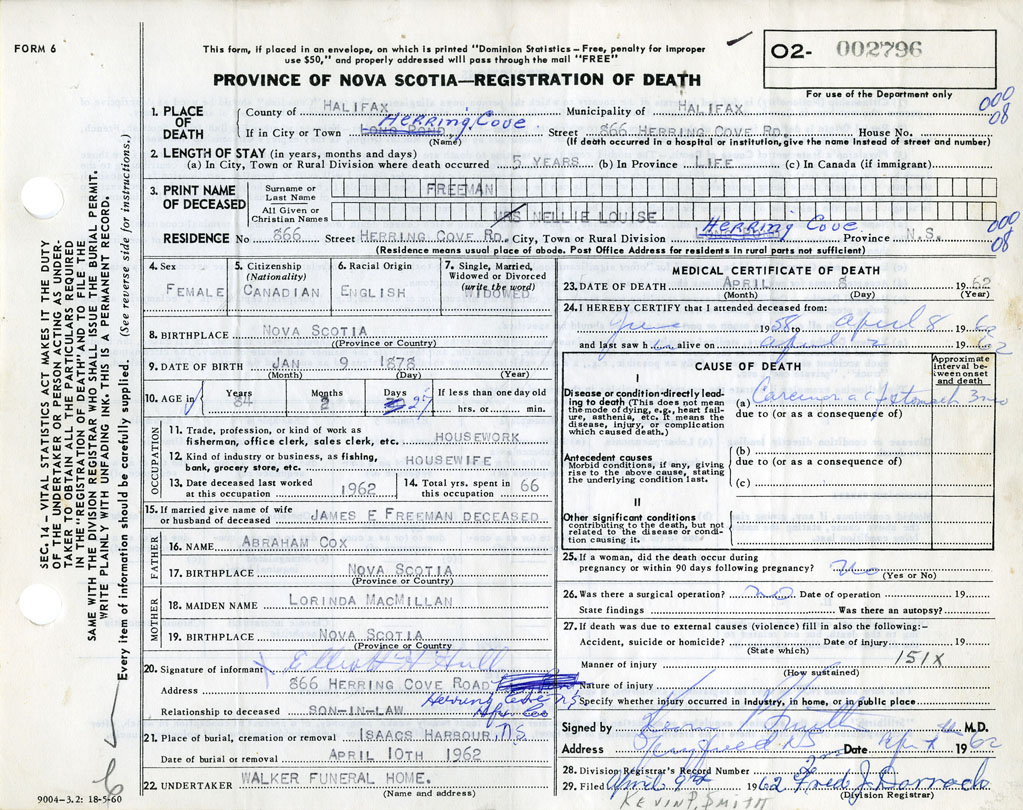 FORM 6
This form, if placed in an envelope, on which is printed "Dominion Statistics – Free, penalty for improper
use $50," and properly addressed will pass through the mail "FREE"
O2- 002796
For use of the Department only
PROVINCE OF NOVA SCOTIA—REGISTRATION OF DEATH
000
08
SEC. 14 – VITAL STATISTICS ACT MAKES IT THE DUTY
OF THE UNDERTAKER OR PERSON ACTING AS UNDER-
TAKER TO OBTAIN ALL THE PARTICULARS REQUIRED
IN THE "REGISTRATION OF DEATH" AND TO FILE THE
SAME WITH THE DIVISION REGISTRAR WHO SHALL ISSUE THE BURIAL PERMIT.
WRITE PLAINLY WITH UNFADING INK. THIS IS A PERMANENT RECORD.
Every item of information should be carefully supplied. (See reverse side for instructions.)
1. PLACE OF DEATH
County of HALIFAX Municipality of HALIFAX
If in City or Town Herring Cove Street 866 HERRING COVE RD. House No.
(Name) (If death occurred in a hospital or institution, give the name instead of street and number)
2. LENGTH OF STAY (in years, months and days)
(a) In City, Town or Rural Division where death occurred 5 YEARS (b) In Province LIFE (c) In Canada (if immigrant)
3. PRINT NAME OF DECEASED
Surname or Last Name FREEMAN
All Given or Christian Names MRS NELLIE LOUISE
RESIDENCE No 866 Street HERRING COVE RD. City, Town or Rural Division Herring Cove Province N.S.
000
08
(Residence means usual place of abode. Post Office Address for residents in rural parts not sufficient)
4. Sex FEMALE
5. Citizenship (Nationality) CANADIAN
6. Racial Origin ENGLISH
7. Single, Married, Widowed or Divorced (write the word) WIDOWED
8. BIRTHPLACE NOVA SCOTIA
(Province or Country)
9. DATE OF BIRTH JAN 9 1878
(Month) (Day) (Year)
10. AGE in Years 84 Months 2 Days 27 If less than one day old hrs. or min.
OCCUPATION
11. Trade, profession, or kind of work as
fisherman, office clerk, sales clerk, etc. HOUSEWORK
12. Kind of industry or business, as fishing,
bank, grocery store, etc. HOUSEWIFE
13. Date deceased last worked at this occupation 1962
14. Total yrs. spent in this occupation 66
15. If married give name of wife
or husband of deceased JAMES E FREEMAN DECEASED
FATHER
16. NAME ABRAHAM COX
17. BIRTHPLACE NOVA SCOTIA
(Province or Country)
MOTHER
18. MAIDEN NAME LORINDA MACMILLAN
19. BIRTHPLACE NOVA SCOTIA
(Province or Country)
20. Signature of informant Elliott H Hull
Address 866 HERRING COVE ROAD
Herring Cove N.S.
Relationship to deceased SON-IN-LAW Hfx Co
21. Place of burial, cremation or removal ISAACS HARBOUR, N.S.
Date of burial or removal APRIL 10TH 1962
22. UNDERTAKER WALKER FUNERAL HOME.
(Name and address)
9004-3.2: 18-5-60
6
MEDICAL CERTIFICATE OF DEATH
23. DATE OF DEATH APRIL 8 1962
(Month) (Day) (Year)
24. I HEREBY CERTIFY that I attended deceased from:
1958 to April 8 1962
and last saw h alive on April 1962
CAUSE OF DEATH
Approximate interval between onset and death
I
Disease or condition directly leading to death (This does not mean the mode of dying, e.g., heart failure, asthenia, etc. It means the disease, injury, or complication which caused death.)
(a) Carcinoma of stomach 3 mo
due to (or as a consequence of)
Antecedent causes
Morbid conditions, if any, giving rise to the above cause, stating the underlying condition last.
(b)
due to (or as a consequence of)
(c)
II
Other significant conditions
contributing to the death, but not related to the disease or condition causing it.
25. If a woman, did the death occur during
pregnancy or within 90 days following pregnancy? No
(Yes or No)
26. Was there a surgical operation? no Date of operation 19
State findings Was there an autopsy?
27. If death was due to external causes (violence) fill in also the following:–
Accident, suicide or homicide? Date of injury 19
(State which)
151X
Manner of injury
(How sustained)
Nature of injury
Specify whether injury occurred in industry, in home, or in public place
Signed by M.D.
Address NS Date 1962
28. Division Registrar's Record Number
29. Filed April 9th 1962 Fred J. Darrach
(Division Registrar)
KEVIN P. SMITH